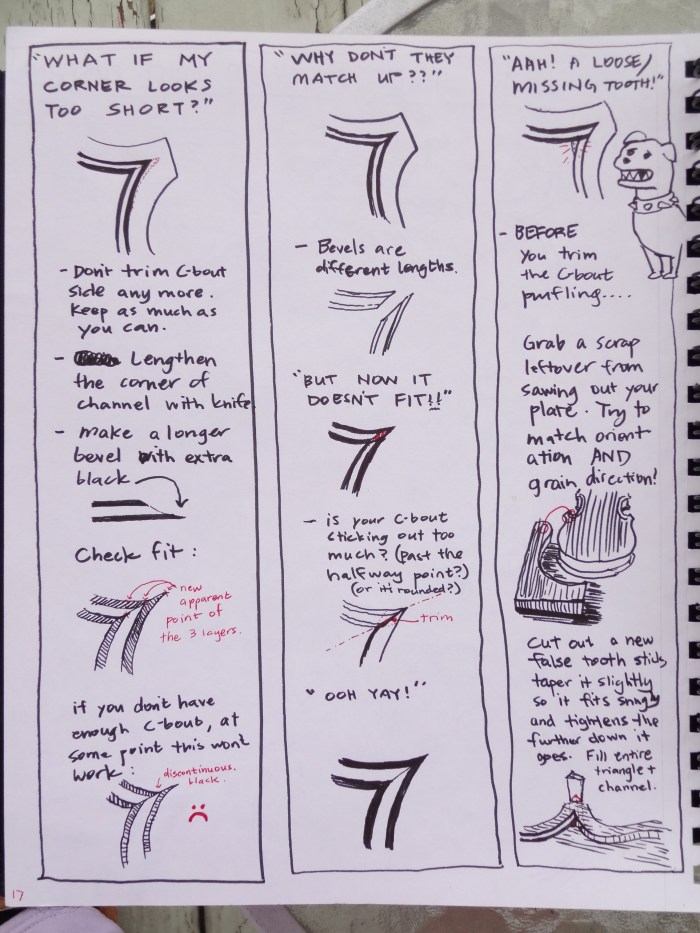 "WHAT IF MY
CORNER LOOKS
TOO SHORT?"
- Don't trim C-bout
side any more.
Keep as much as
you can.
- Lengthen
the corner of
channel with knife
- make a longer
bevel with extra
black
Check fit:
new
apparent
point of
the 3 layers.
if you don't have
enough C-bout, at
some point this won't
work:
discontinuous.
black.
17
"WHY DON'T THEY
MATCH UP??"
- Bevels are
different lengths.
"BUT NOW IT
DOESN'T FIT!!"
- is your C-bout
sticking out too
much? (past the
halfway point?)
(or it's rounded?)
trim
"OOH YAY!"
"AAH! A LOOSE/
MISSING TOOTH!"
- BEFORE
you trim
the C-bout
purfling....
Grab a scrap
leftover from
sawing out your
plate. Try to
match orient
ation AND
grain direction!
Cut out a new
false tooth stick,
taper it slightly
so it fits snugly
and tightens the
further down it
goes. Fill entire
triangle +
channel.